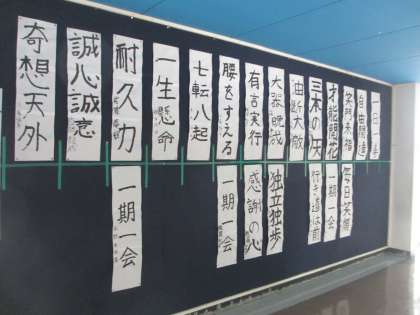 一日一善
自由闊達
笑門来福
才能開花
三本の矢
油断大敵
大器晩成
有言実行
腰をすえる
七転八起
一生懸命
耐久力
誠心誠意
奇想天外
毎日笑顔
一期一会
行き道は前
独立独歩
感謝の心
一期一会
一期一会